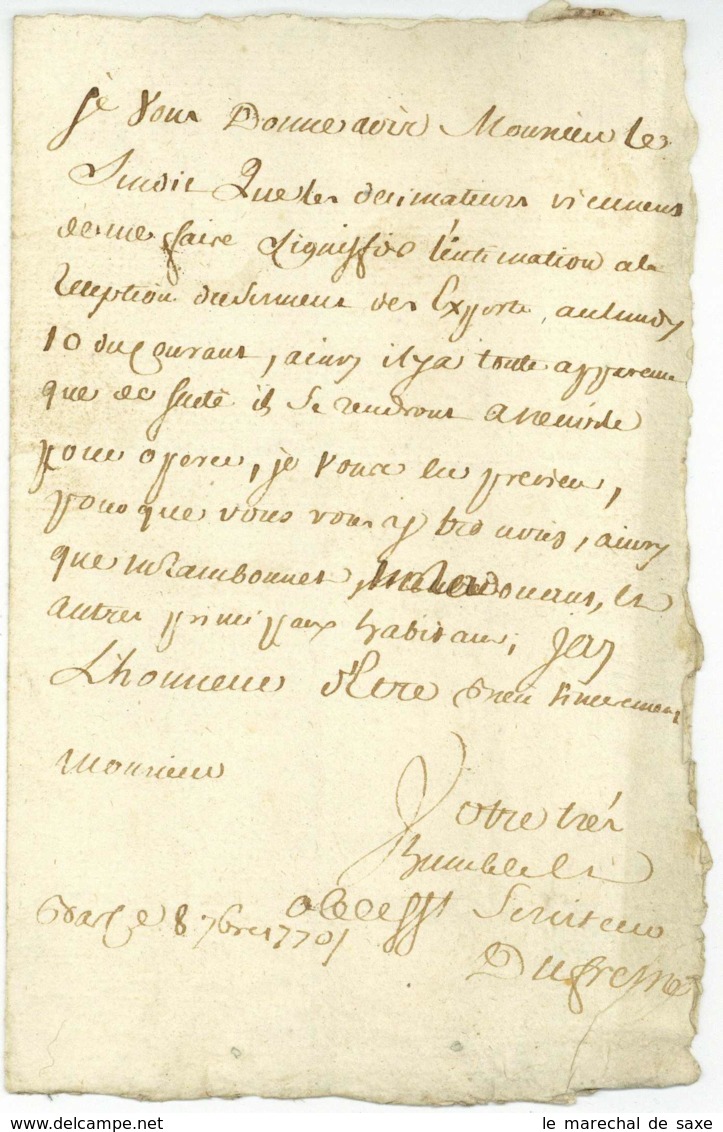 je vous Donne avis Monsieur le
Sindic Que les decimateurs viennent
de me faire signiffier l'intimation a la
reception du serment des Experts, au lundy
10 du Courant, ainsy il y a toute apparence
que de suite ils se rendront a
pour operer, je vous en previen,
pour que vous vous y trouviés, ainsy
que mr Rambonnet, et
autres principaux habitans, j'ay
L'honneur d'Etre bien sincerement
Monsieur
Votre très
humble et
obeisst Serviteur
Dufresne
8 7bre 1770
le marechal de saxe